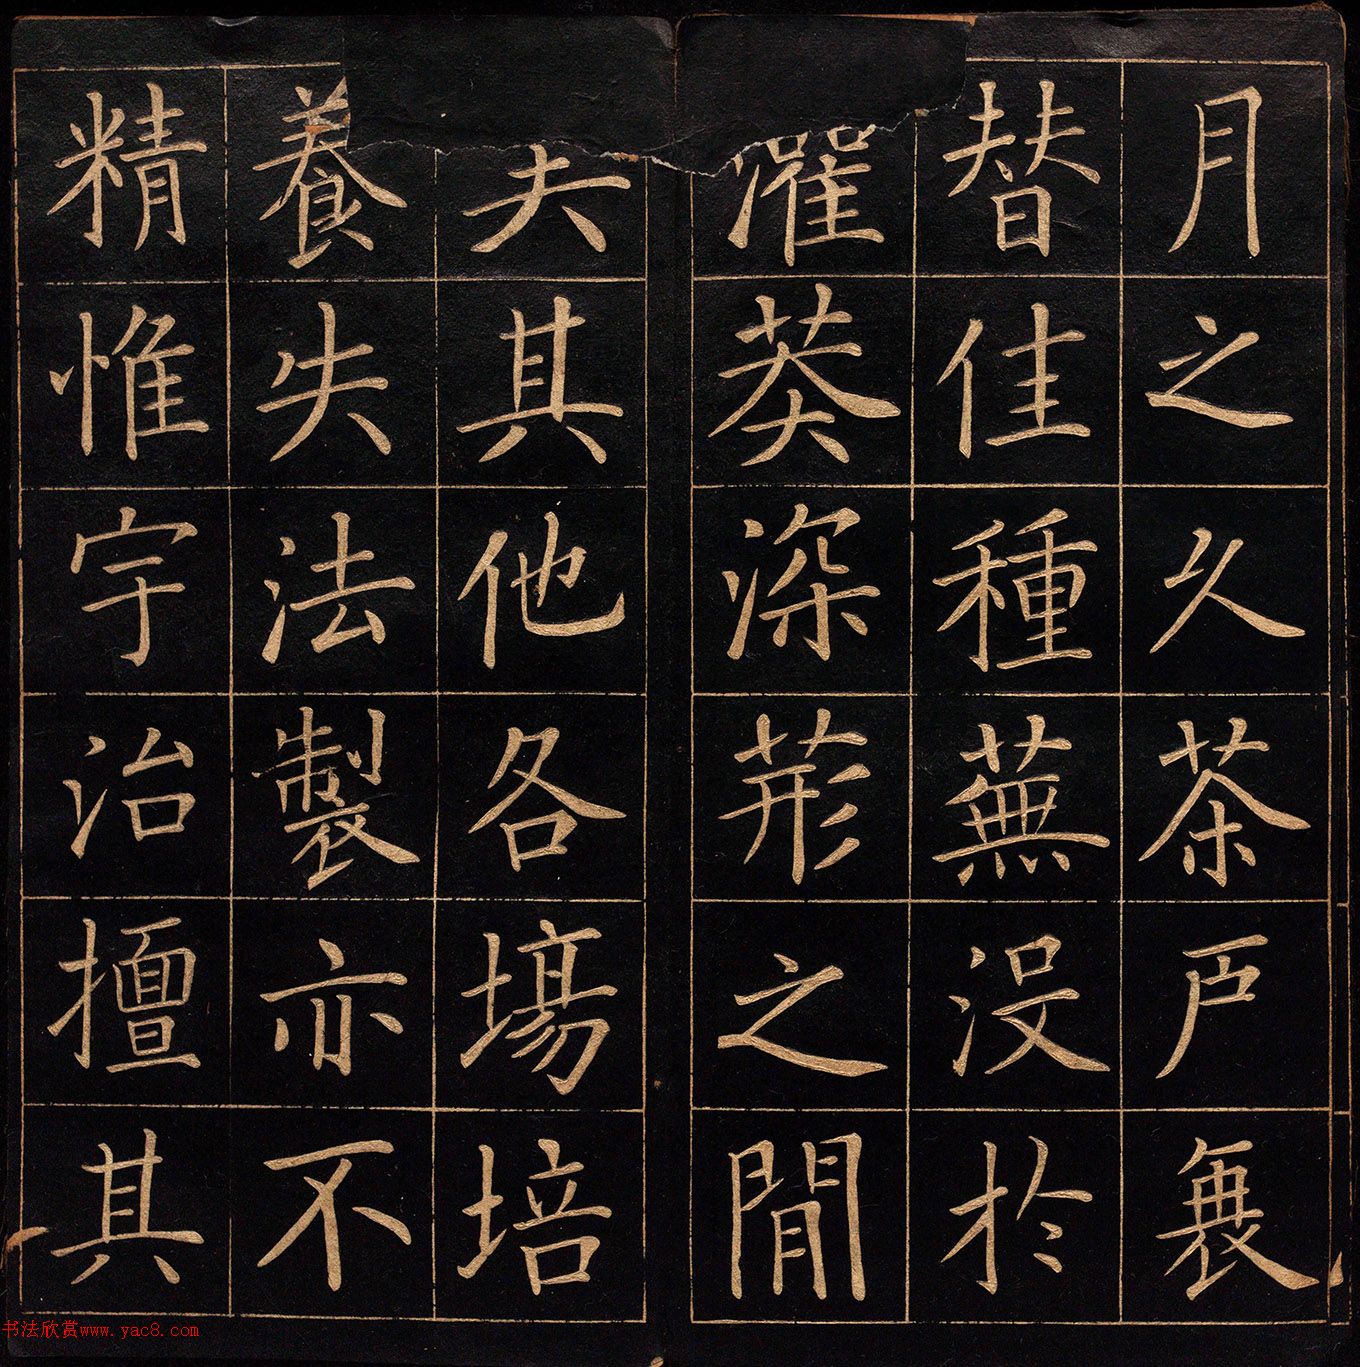 月之久茶戶衰
替佳種蕪沒於
灌莽深之間
夫其他各塲培
養失法製亦不
精惟宇治擅其
书法欣赏www.yac8.com